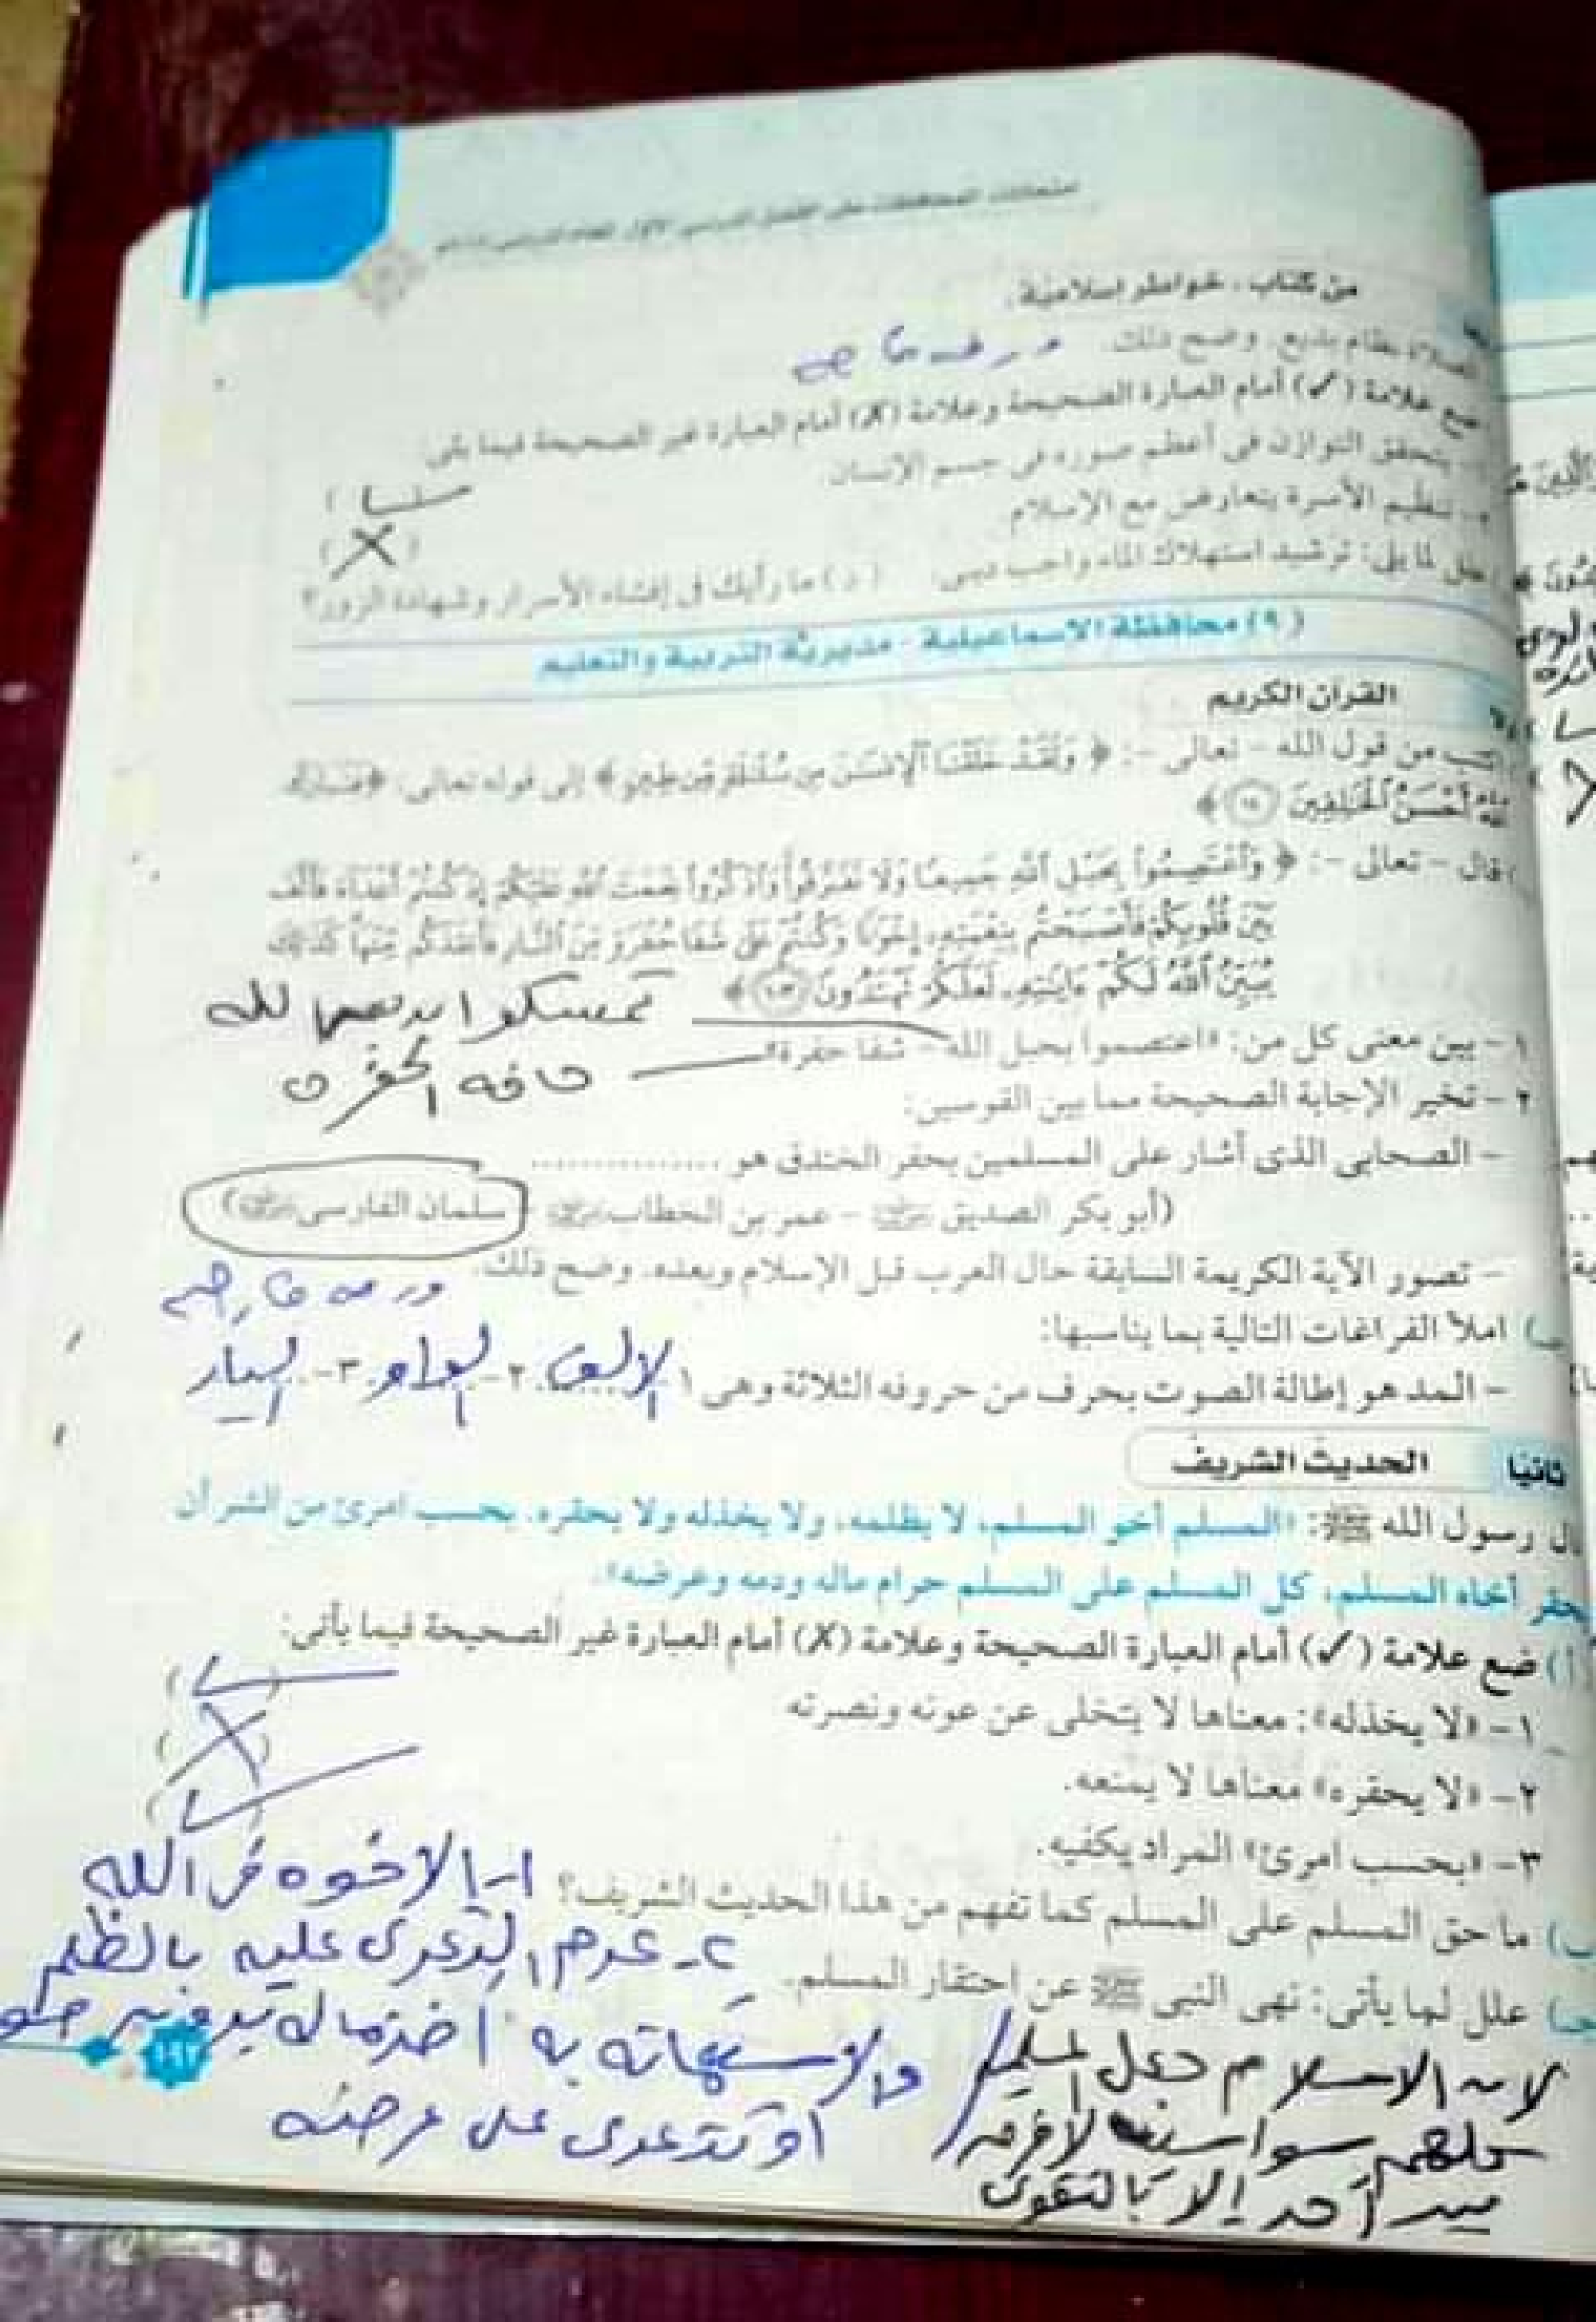 امتحانات المحافظات على الفصل الدراسى الأول للعام الدراسى
من كتاب: خواطر إسلامية
الصلاة نظام بديع. وضح ذلك.
ضع علامة (✓) أمام العبارة الصحيحة وعلامة (X) أمام العبارة غير الصحيحة فيما يأتى
يتحقق التوازن فى أعظم صوره فى جسم الإنسان
تنظيم الأسرة يتعارض مع الإسلام (X)
علل لما يلى: ترشيد استهلاك الماء واجب دينى. (د) ما رأيك فى إفشاء الأسرار وشهادة الزور؟
(٩) محافظة الاسماعيلية - مديرية التربية والتعليم
القرآن الكريم
اكتب من قول الله - تعالى -: ﴿ وَلَقَدْ خَلَقْنَا ٱلْإِنسَٰنَ مِن سُلَٰلَةٍ مِّن طِينٍ ﴾ إلى قوله تعالى: ﴿ فَتَبَارَكَ
ٱللَّهُ أَحْسَنُ ٱلْخَٰلِقِينَ ﴿١٤﴾ ﴾
قال - تعالى -: ﴿ وَٱعْتَصِمُوا۟ بِحَبْلِ ٱللَّهِ جَمِيعًا وَلَا تَفَرَّقُوا۟ وَٱذْكُرُوا۟ نِعْمَتَ ٱللَّهِ عَلَيْكُمْ إِذْ كُنتُمْ أَعْدَآءً فَأَلَّفَ
بَيْنَ قُلُوبِكُمْ فَأَصْبَحْتُم بِنِعْمَتِهِۦٓ إِخْوَٰنًا وَكُنتُمْ عَلَىٰ شَفَا حُفْرَةٍ مِّنَ ٱلنَّارِ فَأَنقَذَكُم مِّنْهَا كَذَٰلِكَ
يُبَيِّنُ ٱللَّهُ لَكُمْ ءَايَٰتِهِۦ لَعَلَّكُمْ تَهْتَدُونَ ﴿١٠٣﴾ ﴾ تمسكوا الله
١ - بين معنى كل من: «اعتصموا بحبل الله - شفا حفرة»
حافه الحفره
٢ - تخير الإجابة الصحيحة مما بين القوسين:
- الصحابى الذى أشار على المسلمين بحفر الخندق هو ................
(أبو بكر الصديق - عمر بن الخطاب - سلمان الفارسى)
- تصور الآية الكريمة السابقة حال العرب قبل الإسلام وبعده. وضح ذلك.
ب) املأ الفراغات التالية بما يناسبها:
- المد هو إطالة الصوت بحرف من حروفه الثلاثة وهى ١ الالف ٢- الواو ٣- الياء
ثانيا الحديث الشريف
قال رسول الله ﷺ: «المسلم أخو المسلم، لا يظلمه، ولا يخذله ولا يحقره. بحسب امرئ من الشر أن
يحقر أخاه المسلم، كل المسلم على المسلم حرام ماله ودمه وعرضه».
(أ) ضع علامة (✓) أمام العبارة الصحيحة وعلامة (X) أمام العبارة غير الصحيحة فيما يأتى:
١- «لا يخذله»: معناها لا يتخلى عن عونه ونصرته (✓)
٢- «لا يحقره» معناها لا يمنعه. (X)
٣- «بحسب امرئ» المراد يكفيه. (✓)
ب) ما حق المسلم على المسلم كما تفهم من هذا الحديث الشريف؟ ١- الاخوه فى الله
٢- عدم التعدى عليه بالظلم
جـ) علل لما يأتى: نهى النبى ﷺ عن احتقار المسلم.
والاستهانه به اخذ ماله بدون حق
او تتعدى على عرضه
١٩٣
لان الاسلام جعل المسلمين
كلهم سواسيه لا فرق
بين أحد إلا بالتقوى